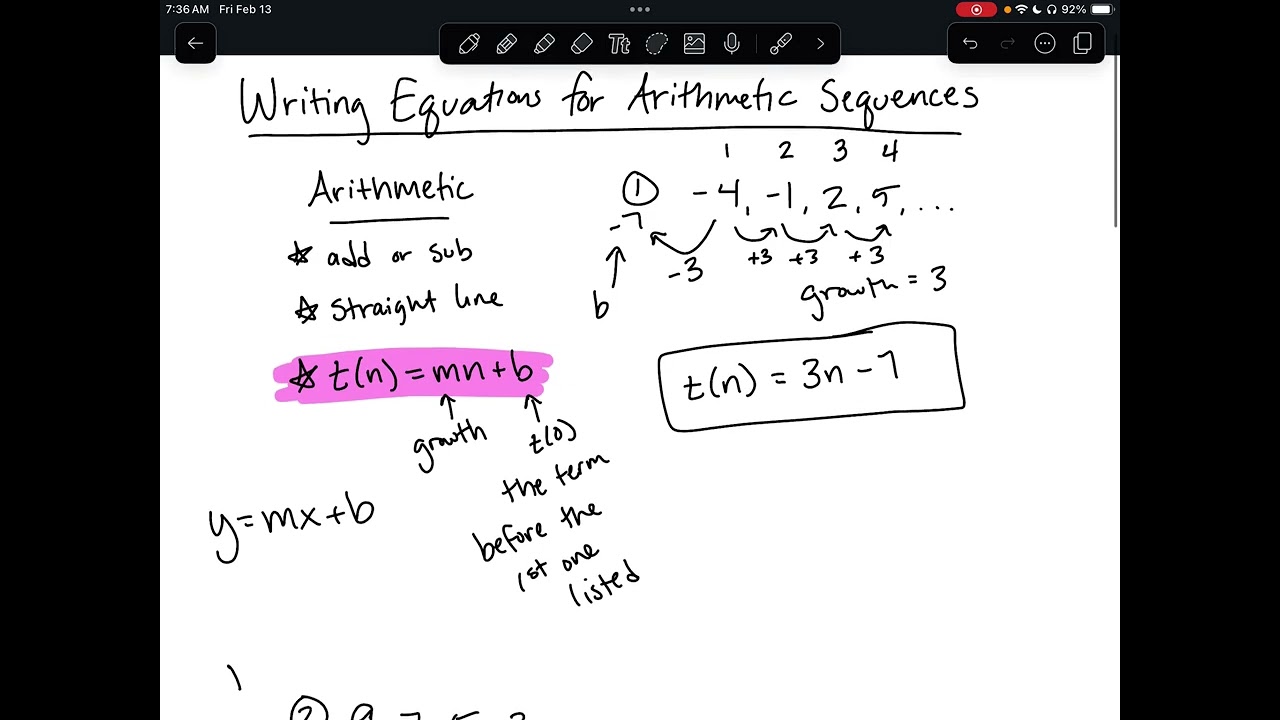 7:36 AM Fri Feb 13
92%
Tt
Writing Equations for Arithmetic Sequences
Arithmetic
☆ add or sub
☆ straight line
☆ t(n) = mn + b
growth
t(0)
the term
before the
1st one
listed
y = mx + b
1 2 3 4
① -4, -1, 2, 5, ...
-7
-3 +3 +3 +3
b
growth = 3
t(n) = 3n - 7
② 9 7 5 3